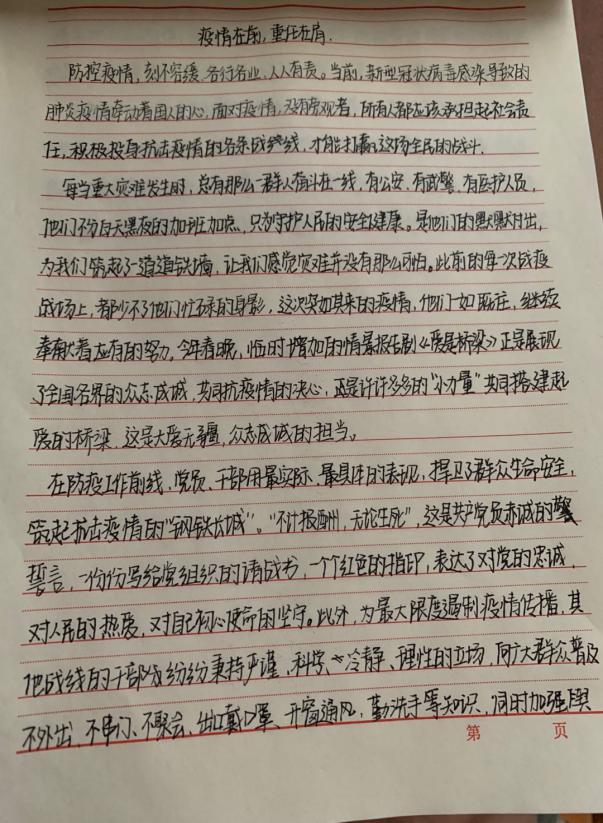 疫情在前，重任在肩.
防控疫情，刻不容缓，各行各业，人人有责。当前，新型冠状病毒感染导致的
肺炎疫情牵动着国人的心，面对疫情，没有旁观者，所有人都应该承担起社会责
任，积极投身抗击疫情的各条战线，才能打赢这场全民的战斗.
每当重大灾难发生时，总有那么一群人奋斗在一线，有公安、有武警、有医护人员，
他们不分白天黑夜的加班加点，只为守护人民的安全健康。是他们的默默付出，
为我们筑起了一道道铁墙，让我们感觉灾难并没有那么可怕。此前的每一次战疫
战场上，都少不了他们忙碌的身影，这次突如其来的疫情，他们一如既往，继续
奉献着应有的努力。今年春晚，临时增加的情景报告剧《爱是桥梁》正是展现
了全国各界的众志成诚，共同抗疫情的决心，还是许许多多的“小力量”共同搭建起
爱的桥梁，这是大爱无疆，众志成诚的担当。
在防疫工作前线，党员、干部用最实际、最具体的表现，捍卫了群众生命安全，
筑起抗击疫情的“钢铁长诚”。“不计报酬，无论生死”，这是共产党员赤诚的
誓言，一份份写给党组织的请战书，一个个红色的指印，表达了对党的忠诚，
对人民的热爱，对自己初心使命的坚守。此外，为最大限度遏制疫情传播，其
他战线的干部纷纷秉持严谨、科学、冷静、理性的立场，向广大群众普及
不外出、不串门、不聚会、出门戴口罩、开窗通风，勤洗手等知识，同时加强舆
第 页